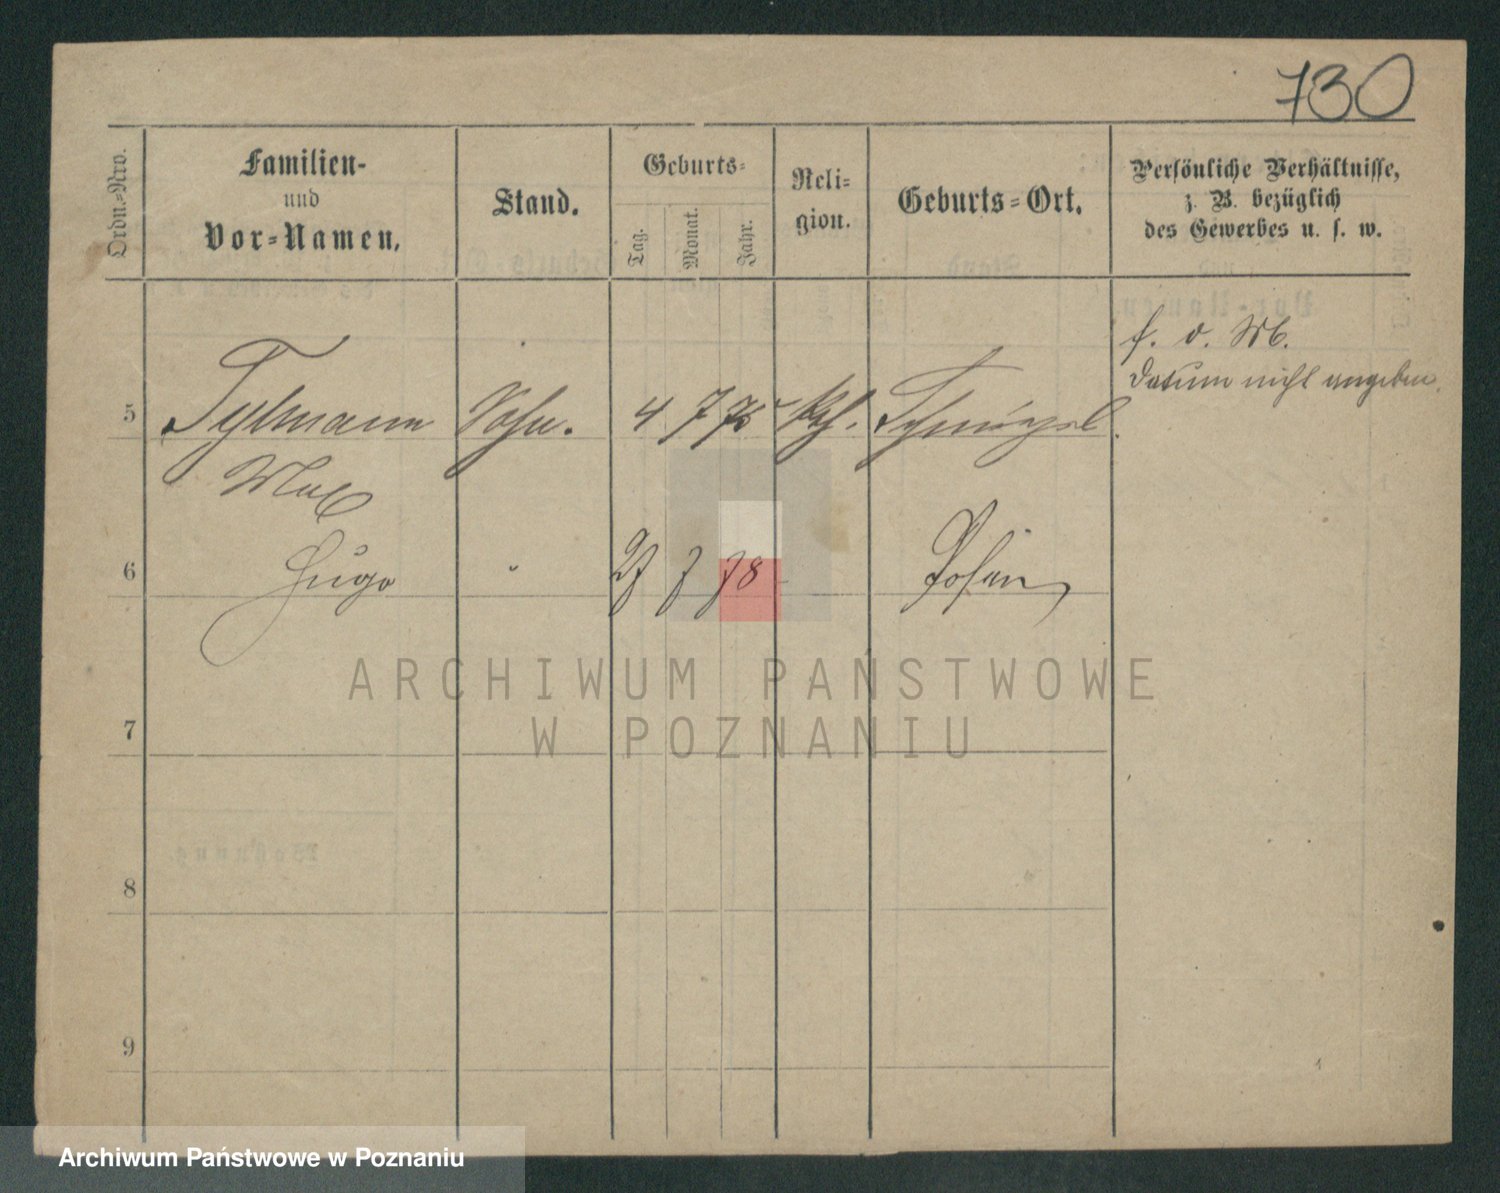 730
Ordn.-Nro.
Familien-
und
Vor-Namen.
Stand.
Geburts-
Tag.
Monat.
Jahr.
Reli-
gion.
Geburts-Ort.
Persönliche Verhältnisse,
z. B. bezüglich
des Gewerbes u. s. w.
f. d. M.
Datum nicht angeben.
5 Tylmann Sohn. 4 7 75 kth. Schmiegel.
Max
6 Hugo " 27 7 78 Posen
ARCHIWUM PAŃSTWOWE
W POZNANIU
7
8
9
Archiwum Państwowe w Poznaniu